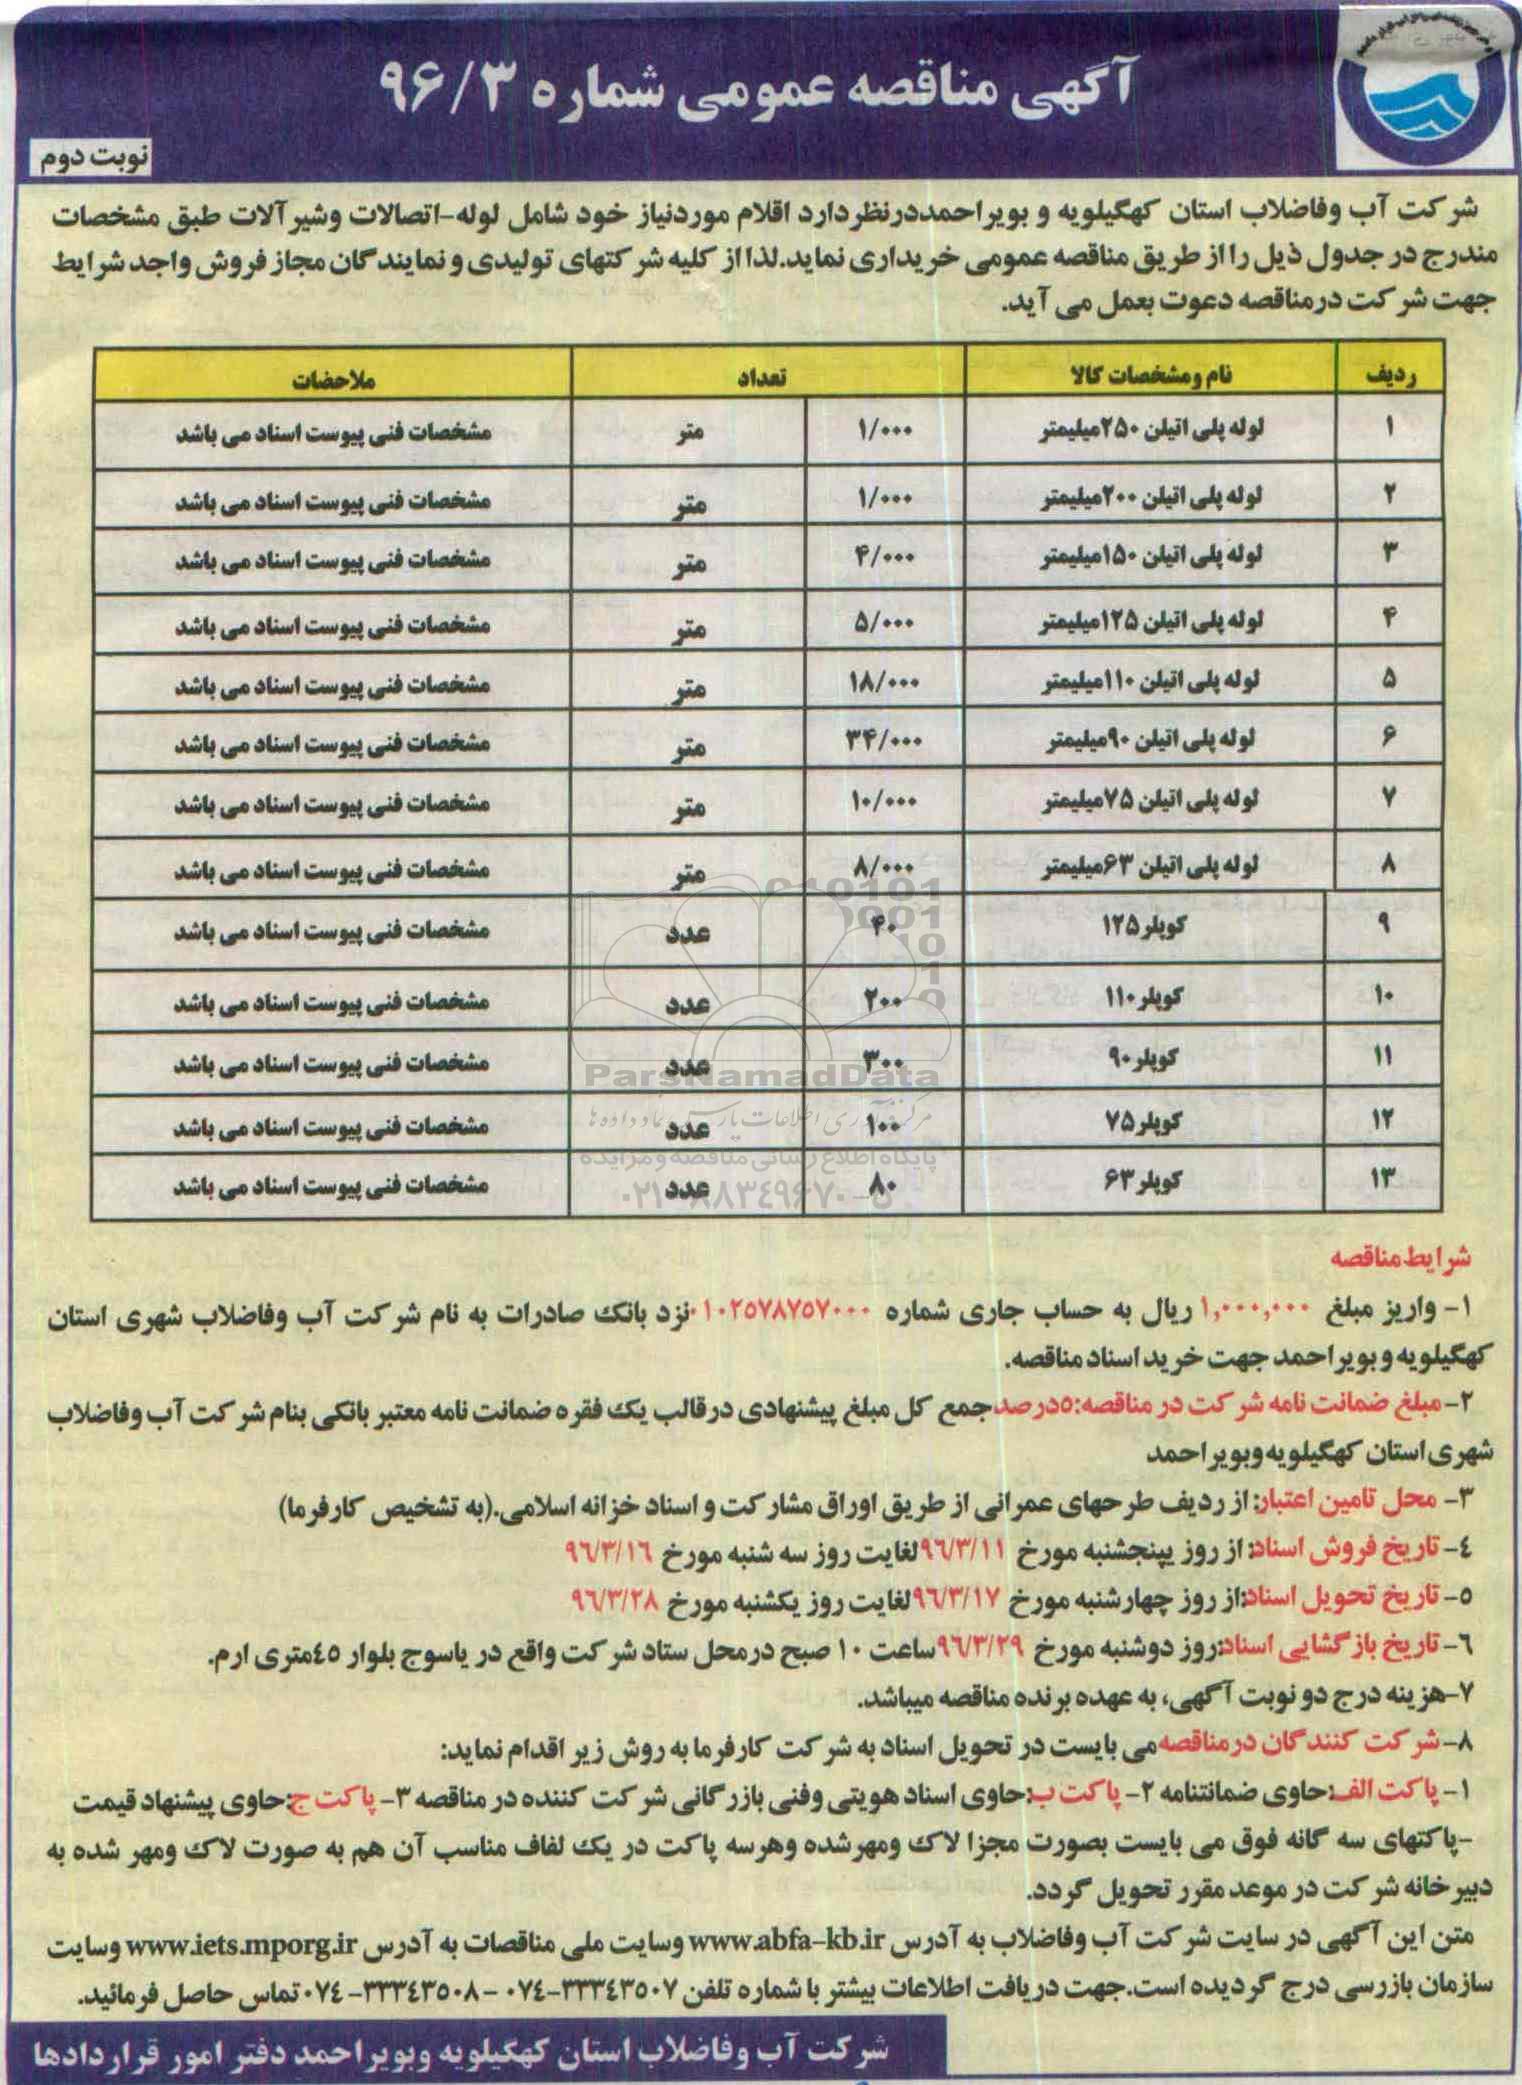 آگهی مناقصه عمومی شماره ۹۶/۳
نوبت دوم
شرکت آب وفاضلاب استان کهگیلویه و بویراحمددرنظردارد اقلام موردنیاز خود شامل لوله-اتصالات وشیرآلات طبق مشخصات
مندرج در جدول ذیل رااز طریق مناقصه عمومی خریداری نماید.لذااز کلیه شرکتهای تولیدی و نمایندگان مجاز فروش واجد شرایط
جهت شرکت درمناقصه دعوت بعمل می آید.
ردیف نام ومشخصات کالا تعداد ملاحضات
۱ لوله پلی اتیلن ۲۵۰میلیمتر ۱/۰۰۰ متر مشخصات فنی پیوست اسناد می باشد
۲ لوله پلی اتیلن ۲۰۰میلیمتر ۱/۰۰۰ متر مشخصات فنی پیوست اسناد می باشد
۳ لوله پلی اتیلن ۱۵۰میلیمتر ۴/۰۰۰ متر مشخصات فنی پیوست اسناد می باشد
۴ لوله پلی اتیلن ۱۲۵میلیمتر ۵/۰۰۰ متر مشخصات فنی پیوست اسناد می باشد
۵ لوله پلی اتیلن ۱۱۰میلیمتر ۱۸/۰۰۰ متر مشخصات فنی پیوست اسناد می باشد
۶ لوله پلی اتیلن ۹۰میلیمتر ۳۴/۰۰۰ متر مشخصات فنی پیوست اسناد می باشد
۷ لوله پلی اتیلن ۷۵میلیمتر ۱۰/۰۰۰ متر مشخصات فنی پیوست اسناد می باشد
۸ لوله پلی اتیلن ۶۳میلیمتر ۸/۰۰۰ متر مشخصات فنی پیوست اسناد می باشد
۹ کوپلر۱۲۵ ۴۰ عدد مشخصات فنی پیوست اسناد می باشد
۱۰ کوپلر۱۱۰ ۲۰۰ عدد مشخصات فنی پیوست اسناد می باشد
۱۱ کوپلر۹۰ ۳۰۰ عدد مشخصات فنی پیوست اسناد می باشد
۱۲ کوپلر۷۵ ۱۰۰ عدد مشخصات فنی پیوست اسناد می باشد
۱۳ کوپلر۶۳ ۸۰ عدد مشخصات فنی پیوست اسناد می باشد
ParsNamadData
پایگاه اطلاع رسانی مناقصه و مزایده
۰۲۱-۸۸۳۴۹۶۷۰-۵
شرایط مناقصه
۱- واریز مبلغ ۱,۰۰۰,۰۰۰ ریال به حساب جاری شماره ۰۱۰۲۵۷۸۷۵۷۰۰۰ نزد بانک صادرات به نام شرکت آب وفاضلاب شهری استان
کهگیلویه و بویراحمد جهت خرید اسناد مناقصه.
۲-مبلغ ضمانت نامه شرکت در مناقصه:۵درصدجمع کل مبلغ پیشنهادی درقالب یک فقره ضمانت نامه معتبر بانکی بنام شرکت آب وفاضلاب
شهری استان کهگیلویه وبویراحمد
۳- محل تامین اعتبار: از ردیف طرحهای عمرانی از طریق اوراق مشارکت و اسناد خزانه اسلامی.(به تشخیص کارفرما)
۴-تاریخ فروش اسناد: از روز پپنجشنبه مورخ ۹۶/۳/۱۱لغایت روز سه شنبه مورخ ۹۶/۳/۱۶
۵- تاریخ تحویل اسناد:از روز چهارشنبه مورخ ۹۶/۳/۱۷لغایت روز یکشنبه مورخ ۹۶/۳/۲۸
۶- تاریخ بازگشایی اسناد:روز دوشنبه مورخ ۹۶/۳/۲۹ساعت ۱۰ صبح درمحل ستاد شرکت واقع در یاسوج بلوار ۴۵متری ارم.
۷-هزینه درج دو نوبت آگهی، به عهده برنده مناقصه میباشد.
۸-شرکت کنندگان درمناقصه می بایست در تحویل اسناد به شرکت کارفرما به روش زیر اقدام نماید:
۱- پاکت الف:حاوی ضمانتنامه ۲- پاکت ب:حاوی اسناد هویتی وفنی بازرگانی شرکت کننده در مناقصه ۳- پاکت ج:حاوی پیشنهاد قیمت
-پاکتهای سه گانه فوق می بایست بصورت مجزا لاک ومهرشده وهرسه پاکت در یک لفاف مناسب آن هم به صورت لاک ومهر شده به
دبیرخانه شرکت در موعد مقرر تحویل گردد.
متن این آگهی در سایت شرکت آب وفاضلاب به آدرس www.abfa-kb.ir وسایت ملی مناقصات به آدرس www.iets.mporg.ir وسایت
سازمان بازرسی درج گردیده است.جهت دریافت اطلاعات بیشتر با شماره تلفن ۳۳۳۴۳۵۰۷-۰۷۴ - ۳۳۳۴۳۵۰۸-۰۷۴تماس حاصل فرمائید.
شرکت آب وفاضلاب استان کهگیلویه وبویراحمد دفتر امور قراردادها